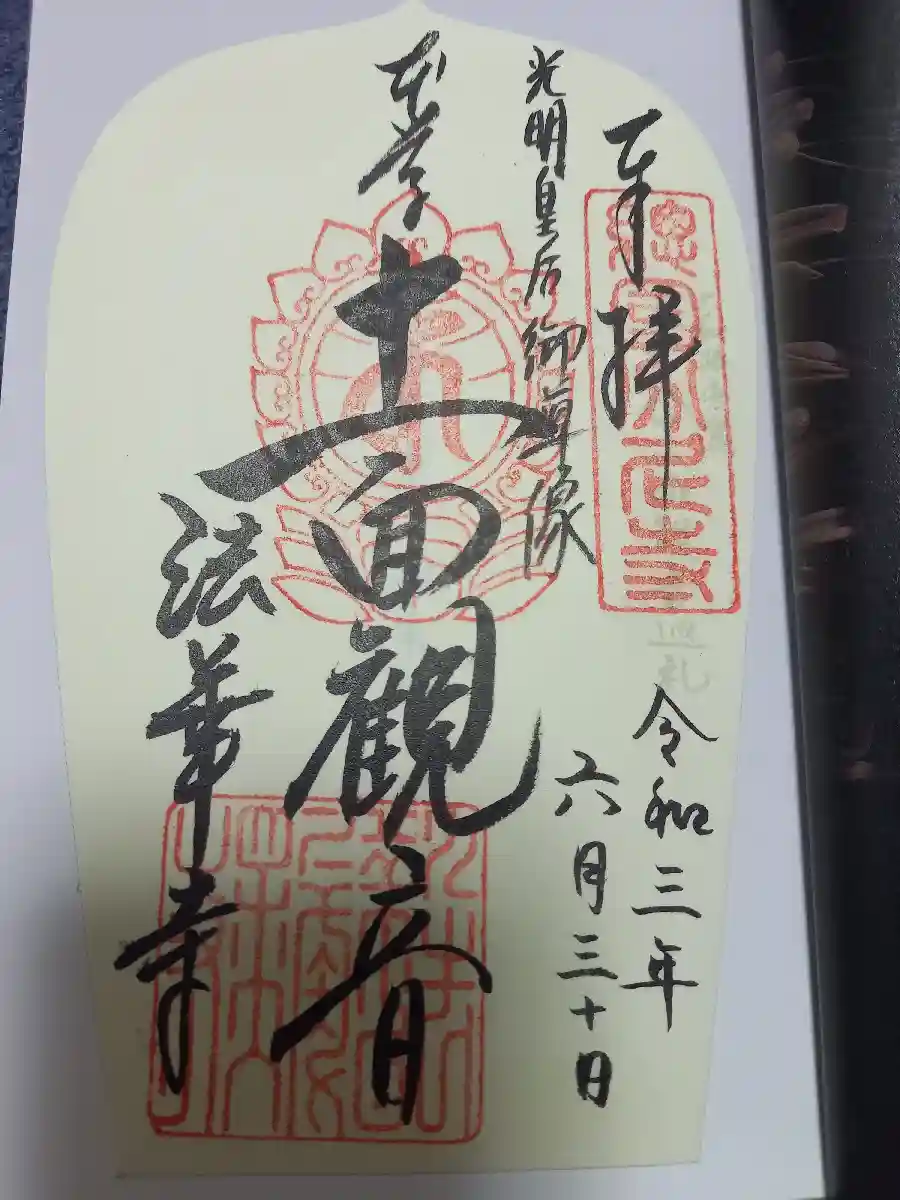 奉拝
令和三年
六月三十日
光明皇后御尊像
本尊
十一面觀音
法華寺